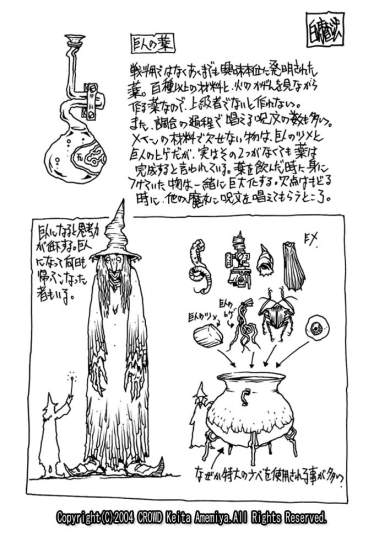 白魔法
巨人の薬
戦斗用ではなくあくまでも興味本位で発明された
薬。百種以上の材料と、火のかげんを見ながら
作る薬なので、上級者でないと作れない。
また、調合の過程で唱える呪文の数も多い。
メインの材料で欠せない物は、巨人のツメと
巨人のヒゲだが、実はその2つがなくても薬は
完成すると言われている。薬を飲んだ時に身に
つけていた物は一緒に巨大化する。欠点はもどる
時に、他の魔導に呪文を唱えてもらうところ。
巨人になると思考力
が低下する。巨人
になって何日も
帰ってこなかった
者もいる。
EX.
巨人のヒゲ
巨人のツメ
なぜか特大のナベを使用される事が多い
Copyright(C)2004 CROWD Keita Amemiya.All Rights Reserved.